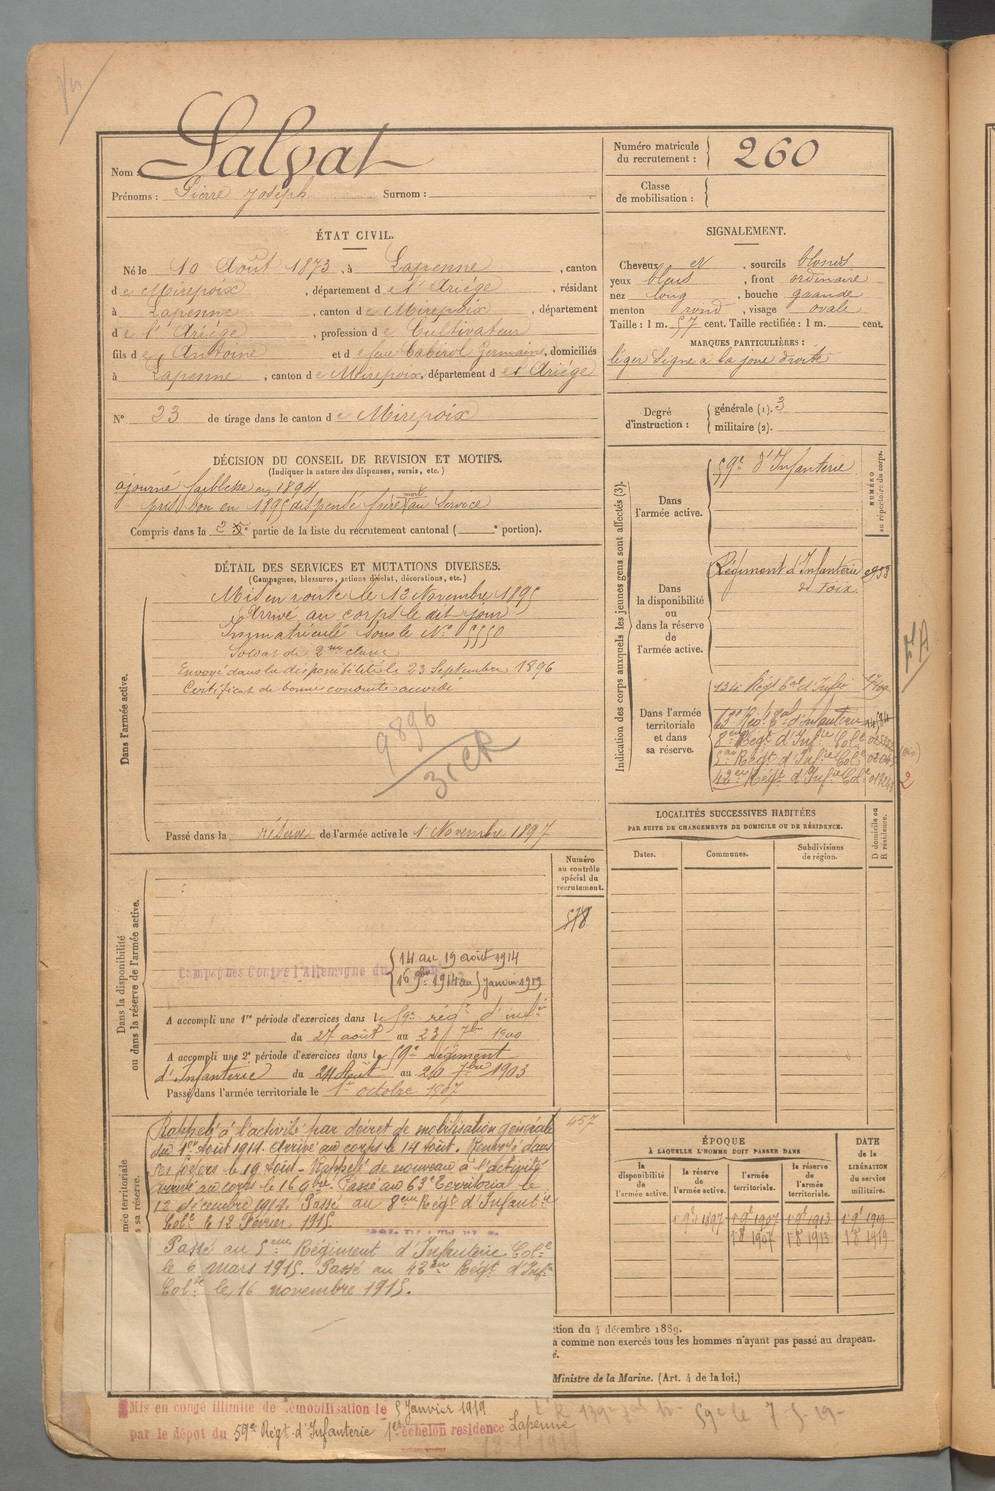 Nom : Salvat
Prénoms : Pierre Joseph Surnom :
Numéro matricule du recrutement : 260
Classe de mobilisation :
ÉTAT CIVIL.
Né le 10 Août 1873, à Lapenne, canton
de Mirepoix, département de l'Ariège, résidant
à Lapenne, canton de Mirepoix, département
de l'Ariège, profession de Cultivateur
fils de Antoine et de feue Cabirol Germaine, domiciliés
à Lapenne, canton de Mirepoix, département de l'Ariège
N° 23 de tirage dans le canton de Mirepoix
SIGNALEMENT.
Cheveux et, sourcils blonds
yeux bleus, front ordinaire
nez long, bouche grande
menton rond, visage ovale
Taille : 1 m. 57 cent. Taille rectifiée : 1 m. cent.
MARQUES PARTICULIÈRES :
léger signe à la joue droite
Degré d'instruction : générale (1). 3
militaire (2).
DÉCISION DU CONSEIL DE REVISION ET MOTIFS.
(Indiquer la nature des dispenses, sursis, etc.)
ajourné faiblesse en 1894
pris bon en 1895 dispensé frère mort au service
Compris dans la 2e partie de la liste du recrutement cantonal ( e portion).
DÉTAIL DES SERVICES ET MUTATIONS DIVERSES.
(Campagnes, blessures, actions d'éclat, décorations, etc.)
Dans l'armée active.
Mis en route le 13 Novembre 1895
Arrivé au corps le dit jour
Immatriculé sous le N° 5550
Soldat de 2me classe
Envoyé dans la disponibilité le 23 Septembre 1896
Certificat de bonne conduite accordé
9896
Passé dans la réserve de l'armée active le 1er Novembre 1897
Indication des corps auxquels les jeunes gens sont affectés (3).
NUMÉRO au répertoire du corps.
Dans l'armée active.
59e d'Infanterie
Dans la disponibilité ou dans la réserve de l'armée active.
Régiment d'Infanterie
de Foix
Dans l'armée territoriale et dans sa réserve.
134e Régt Tal d'Infie
63e Reg. Tal d'Infanterie
8eme Regt d'Infrie Colle
5eme Regt d'Infrie Colle
42eme Régt d'Infrie Colle
2
LOCALITÉS SUCCESSIVES HABITÉES
PAR SUITE DE CHANGEMENTS DE DOMICILE OU DE RÉSIDENCE.
Dates. Communes. Subdivisions de région. D domicile ou R résidence.
Numéro au contrôle spécial du recrutement.
518
Dans la disponibilité ou dans la réserve de l'armée active.
Campagnes Contre l'Allemagne du 14 au 19 août 1914
16 9bre 1914 au 5 janvier 1919
A accompli une 1re période d'exercices dans le 59e régt d'infie
du 27 août au 23 7bre 1900
A accompli une 2e période d'exercices dans le 59e Régiment
d'Infanterie du 24 Août au 20 7bre 1903
Passé dans l'armée territoriale le 1er octobre 1907
657
Rappelé à l'activité par décret de mobilisation générale
du 1er Août 1914. Arrivé au corps le 14 août. Renvoyé dans
ses foyers le 19 Août - Rappelé de nouveau à l'activité
arrivé au corps le 16 9bre. Passé au 63e Territorial le
12 décembre 1914. Passé au 8eme Régt d'Infantie
Colle le 12 Février 1915
Passé au 5eme Régiment d'Infanterie Colle
le 6 mars 1915. Passé au 42eme Régt d'Infie
Colle le 16 novembre 1915.
ÉPOQUE
À LAQUELLE L'HOMME DOIT PASSER DANS
la disponibilité de l'armée active. la réserve de l'armée active. l'armée territoriale. la réserve de l'armée territoriale.
DATE de la LIBÉRATION du service militaire.
1 9e 1897 1 9e 1907 1 9e 1913 1 9e 1919
1 8 1907 1 8 1913 1 8 1919
ction du 4 décembre 1889.
a comme non exercés tous les hommes n'ayant pas passé au drapeau.
Ministre de la Marine. (Art. 4 de la loi.)
Mis en congé illimité de démobilisation le 5 Janvier 1919
par le dépôt du 59e Régt d'Infanterie 1er échelon residence Lapenne